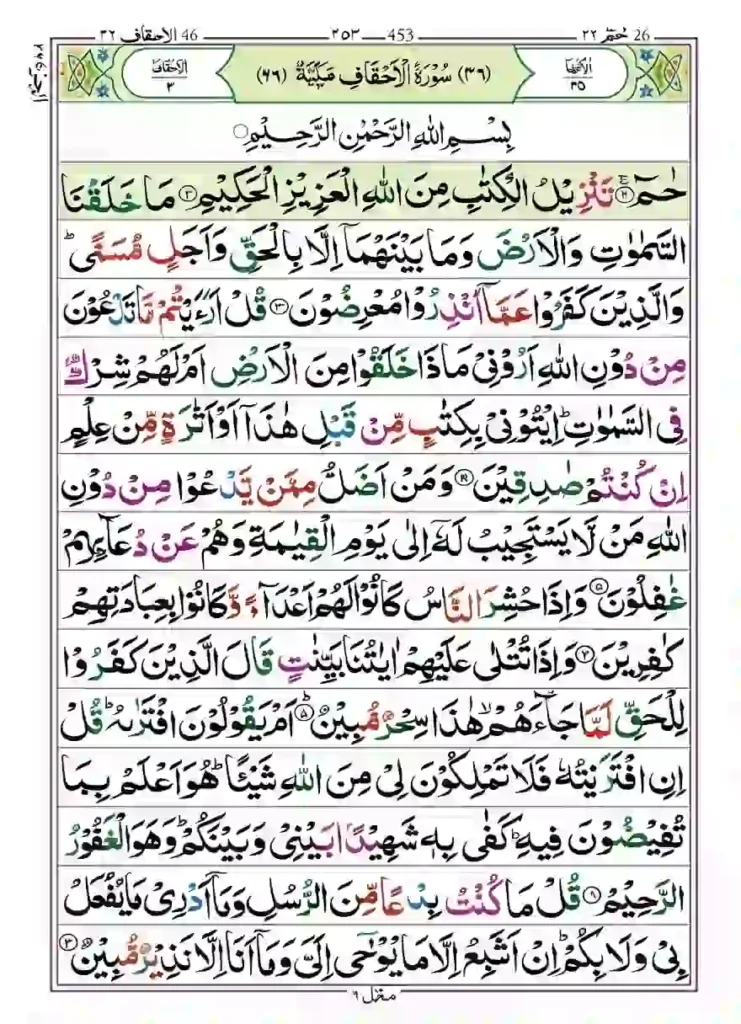 46 الاحقاف ٣٢ ٣٥٣ 453 26 حٰمٓ ٢٢
الاحقاف ٣ (٣٦) سُوْرَةُ الْاَحْقَافِ مَكِّيَّةٌ (٦٦) ٣٥
بِسْمِ اللهِ الرَّحْمٰنِ الرَّحِيْمِ
حٰمٓ تَنْزِيْلُ الْكِتٰبِ مِنَ اللهِ الْعَزِيْزِ الْحَكِيْمِ ٢ مَا خَلَقْنَا
السَّمٰوٰتِ وَالْاَرْضَ وَمَا بَيْنَهُمَاۤ اِلَّا بِالْحَقِّ وَاَجَلٍ مُّسَمًّىؕ
وَالَّذِيْنَ كَفَرُوْا عَمَّاۤ اُنْذِرُوْا مُعْرِضُوْنَ ٣ قُلْ اَرَءَيْتُمْ مَّا تَدْعُوْنَ
مِنْ دُوْنِ اللهِ اَرُوْنِيْ مَاذَا خَلَقُوْا مِنَ الْاَرْضِ اَمْ لَهُمْ شِرْكٌ
فِى السَّمٰوٰتِؕ اِيْتُوْنِيْ بِكِتٰبٍ مِّنْ قَبْلِ هٰذَاۤ اَوْ اَثٰرَةٍ مِّنْ عِلْمٍ
اِنْ كُنْتُمْ صٰدِقِيْنَ وَمَنْ اَضَلُّ مِمَّنْ يَّدْعُوْا مِنْ دُوْنِ
اللهِ مَنْ لَّا يَسْتَجِيْبُ لَهٗۤ اِلٰى يَوْمِ الْقِيٰمَةِ وَهُمْ عَنْ دُعَآئِهِمْ
غٰفِلُوْنَ ٥ وَاِذَا حُشِرَ النَّاسُ كَانُوْا لَهُمْ اَعْدَآءً وَّكَانُوْا بِعِبَادَتِهِمْ
كٰفِرِيْنَ وَاِذَا تُتْلٰى عَلَيْهِمْ اٰيٰتُنَا بَيِّنٰتٍ قَالَ الَّذِيْنَ كَفَرُوْا
لِلْحَقِّ لَمَّا جَآءَهُمْۙ هٰذَا سِحْرٌ مُّبِيْنٌؕ اَمْ يَقُوْلُوْنَ افْتَرٰىهُؕ قُلْ
اِنِ افْتَرَيْتُهٗ فَلَا تَمْلِكُوْنَ لِيْ مِنَ اللهِ شَيْـًٔاؕ هُوَ اَعْلَمُ بِمَا
تُفِيْضُوْنَ فِيْهِؕ كَفٰى بِهٖ شَهِيْدًاۢ بَيْنِيْ وَبَيْنَكُمْؕ وَهُوَ الْغَفُوْرُ
الرَّحِيْمُ قُلْ مَا كُنْتُ بِدْعًا مِّنَ الرُّسُلِ وَمَاۤ اَدْرِيْ مَا يُفْعَلُ
بِيْ وَلَا بِكُمْؕ اِنْ اَتَّبِعُ اِلَّا مَا يُوْحٰۤى اِلَيَّ وَمَاۤ اَنَا اِلَّا نَذِيْرٌ مُّبِيْنٌ
منزل